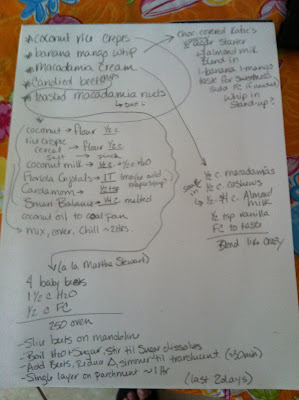 * coconut rice crepes
* banana mango whip
* macadamia cream
* candied beet rings
* toasted macadamia nuts
Choc. covered Katie's
starter
almond milk
Blend in
1-banana 1-mango
taste for sweetness
add FC if needed
whip in
stand-up?
coconut → flour ½ c.
rice crispie
cereal → flour ½ c
salt → pinch
coconut milk →
Florida Crystals → 1T (maybe add
Cardamom → ½ tsp
Smart Balance → ¼ c melted
coconut oil to coat pan
- Mix, cover. Chill ~ 2hrs.
soak in
½ c. macadamias
½ c. cashews
½-¾ c. Almond
milk
½ tsp vanilla
FC to taste
Blend like crazy
(a la Martha Stewart)
4 baby beets
1 ½ c H2O
½ c FC
250 oven
- Slice beets on mandoline
- Boil H2O + Sugar, stir til sugar dissolves
- Add Beets, Reduce Δ, simmer til translucent (~30min)
- Single layer on parchment ~ 1 Hr
(last 2 days)